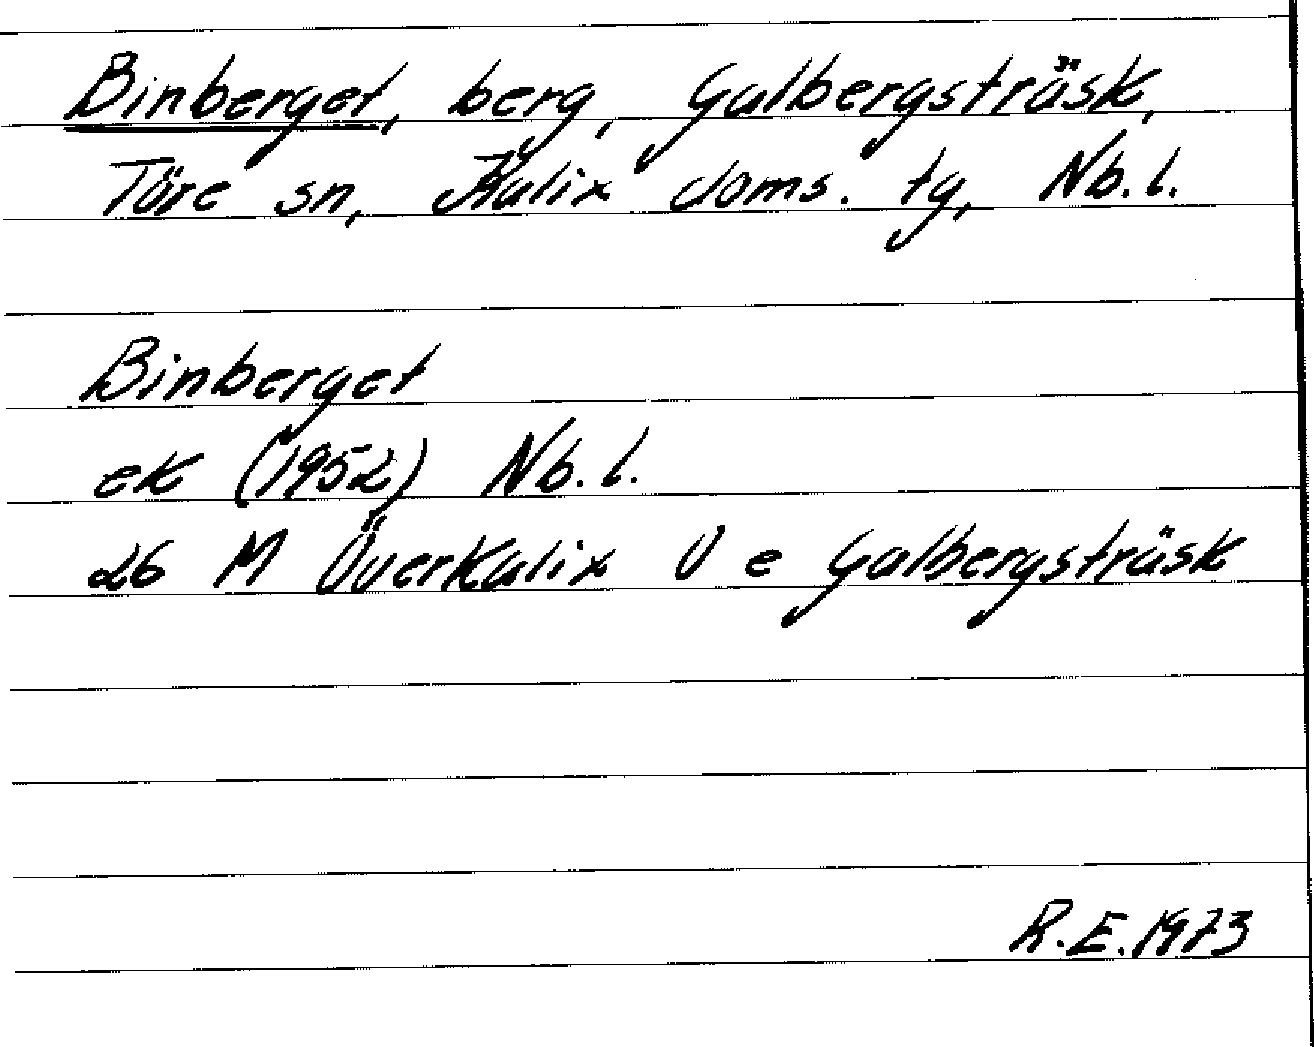 Binberget, berg, Galbergsträsk,
Töre sn, Kalix doms. tg, Nb.l.
Binberget
ek (1952) Nb.l.
26 M Överkalix V e Galbergsträsk
R.E. 1973